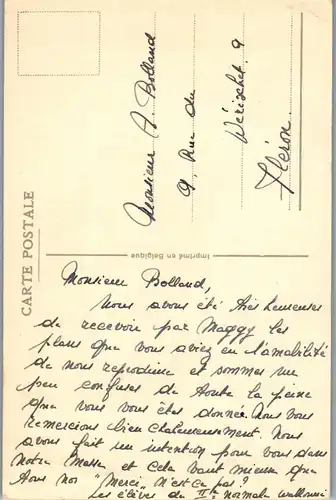 CARTE POSTALE
Monsieur J. Bolland
9, Rue du
Wérischet 9
Fléron.
Imprimé en Belgique
Monsieur Bolland,
Nous avons été très heureuses
de recevoir par Maggy les
plans que vous aviez eu l'amabilité
de nous reproduire et sommes un
peu confuses de toute la peine
que vous vous êtes donnée. Nous vous
remercions bien chaleureusement. Nous
avons fait une intention pour vous dans
notre Messe et cela vaut mieux que
tous nos "Merci" n'est-ce pas?
Les élèves de IIe normale